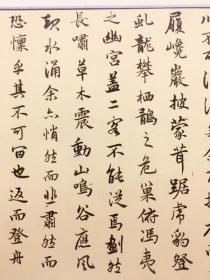 履巉巖披蒙茸踞虎豹登
虬龍攀栖鶻之危巢俯馮夷
之幽宮蓋二客不能從焉劃然
長嘯草木震動山鳴谷應風
起水涌余亦悄然而悲肅然而
恐懍乎其不可留也返而登舟